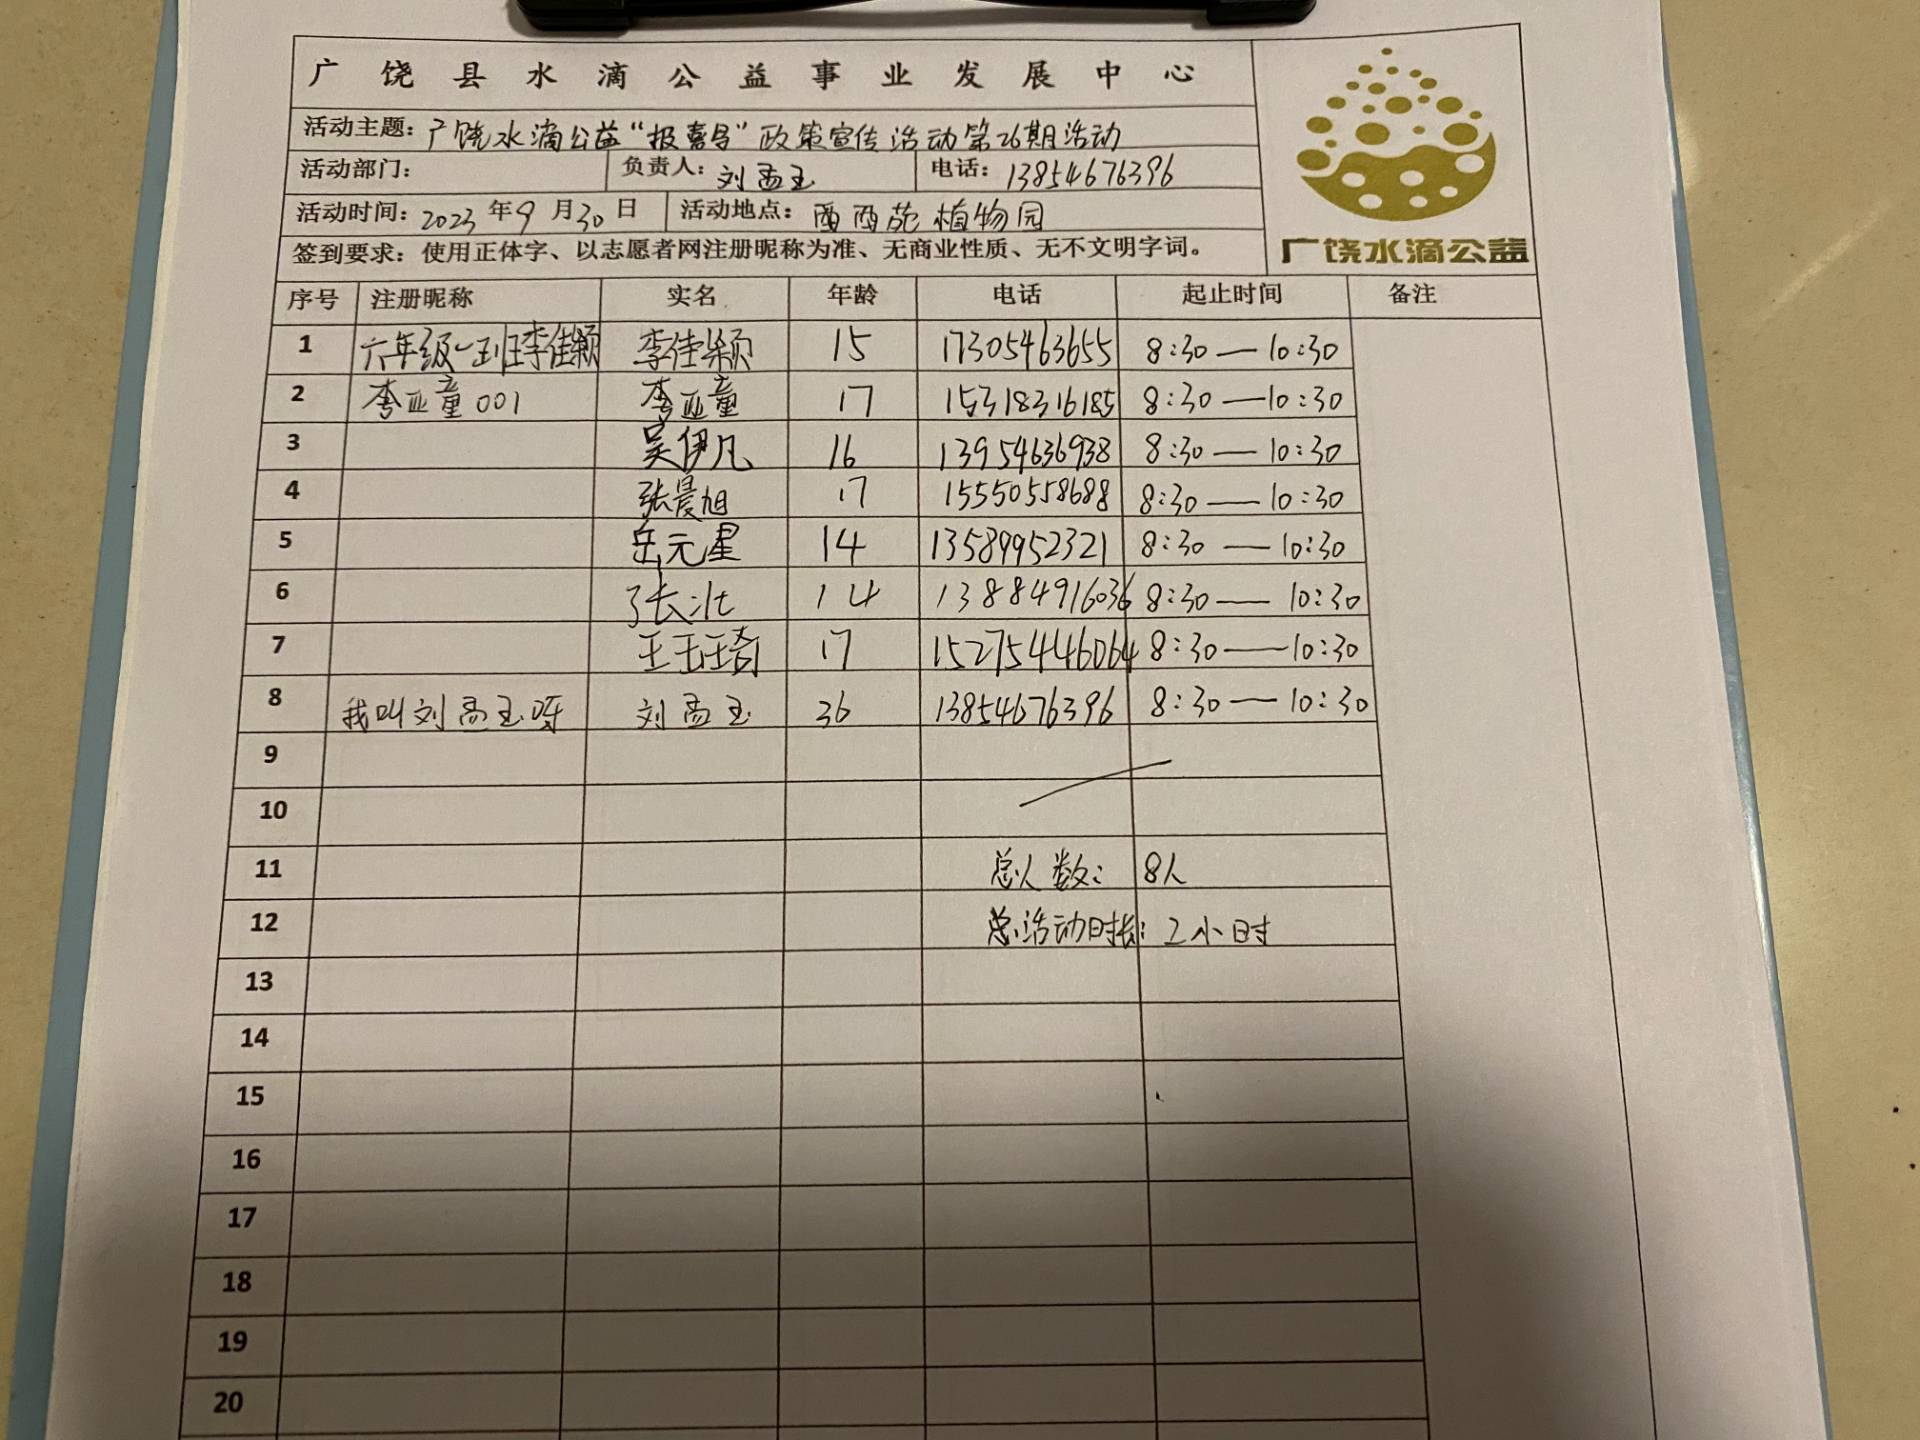 广饶县水滴公益事业发展中心
活动主题：广饶水滴公益“报嘉号”政策宣传活动第26期活动
活动部门： 负责人：刘孟玉 电话：13854676396
活动时间：2023年9月30日 活动地点：西苑植物园
签到要求：使用正体字、以志愿者网注册昵称为准、无商业性质、无不文明字词。
广饶水滴公益
序号 注册昵称 实名 年龄 电话 起止时间 备注
1 六年级一班李佳颖 李佳颖 15 17305463655 8:30—10:30
2 李亚童001 李亚童 17 15318316185 8:30—10:30
3 吴伊凡 16 13954636938 8:30—10:30
4 张晨旭 17 15550558688 8:30—10:30
5 岳元星 14 13589952321 8:30—10:30
6 张 14 13884916036 8:30—10:30
7 王玉琦 17 15275446064 8:30—10:30
8 我叫刘孟玉呀 刘孟玉 36 13854676396 8:30—10:30
9
10
11 总人数：8人
12 总活动时长：2小时
13
14
15
16
17
18
19
20